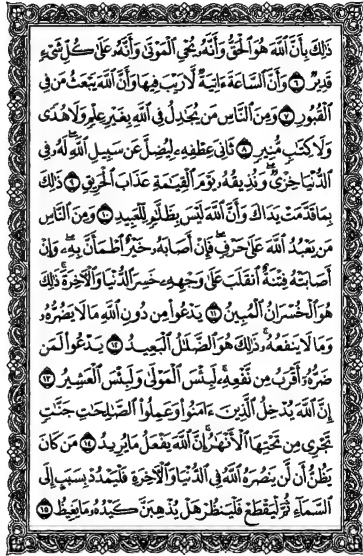 ذَٰلِكَ بِأَنَّ ٱللَّهَ هُوَ ٱلْحَقُّ وَأَنَّهُۥ يُحْىِ ٱلْمَوْتَىٰ وَأَنَّهُۥ عَلَىٰ كُلِّ شَىْءٍ
قَدِيرٌ ٦ وَأَنَّ ٱلسَّاعَةَ ءَاتِيَةٌ لَّا رَيْبَ فِيهَا وَأَنَّ ٱللَّهَ يَبْعَثُ مَن فِى
ٱلْقُبُورِ ٧ وَمِنَ ٱلنَّاسِ مَن يُجَٰدِلُ فِى ٱللَّهِ بِغَيْرِ عِلْمٍ وَلَا هُدًى
وَلَا كِتَٰبٍ مُّنِيرٍ ٨ ثَانِىَ عِطْفِهِۦ لِيُضِلَّ عَن سَبِيلِ ٱللَّهِ ۖ لَهُۥ فِى
ٱلدُّنْيَا خِزْىٌ ۖ وَنُذِيقُهُۥ يَوْمَ ٱلْقِيَٰمَةِ عَذَابَ ٱلْحَرِيقِ ٩ ذَٰلِكَ
بِمَا قَدَّمَتْ يَدَاكَ وَأَنَّ ٱللَّهَ لَيْسَ بِظَلَّٰمٍ لِّلْعَبِيدِ ١٠ وَمِنَ ٱلنَّاسِ
مَن يَعْبُدُ ٱللَّهَ عَلَىٰ حَرْفٍ ۖ فَإِنْ أَصَابَهُۥ خَيْرٌ ٱطْمَأَنَّ بِهِۦ ۖ وَإِنْ
أَصَابَتْهُ فِتْنَةٌ ٱنقَلَبَ عَلَىٰ وَجْهِهِۦ خَسِرَ ٱلدُّنْيَا وَٱلْءَاخِرَةَ ۚ ذَٰلِكَ
هُوَ ٱلْخُسْرَانُ ٱلْمُبِينُ ١١ يَدْعُوا۟ مِن دُونِ ٱللَّهِ مَا لَا يَضُرُّهُۥ
وَمَا لَا يَنفَعُهُۥ ۚ ذَٰلِكَ هُوَ ٱلضَّلَٰلُ ٱلْبَعِيدُ ١٢ يَدْعُوا۟ لَمَن
ضَرُّهُۥٓ أَقْرَبُ مِن نَّفْعِهِۦ ۚ لَبِئْسَ ٱلْمَوْلَىٰ وَلَبِئْسَ ٱلْعَشِيرُ ١٣
إِنَّ ٱللَّهَ يُدْخِلُ ٱلَّذِينَ ءَامَنُوا۟ وَعَمِلُوا۟ ٱلصَّٰلِحَٰتِ جَنَّٰتٍ
تَجْرِى مِن تَحْتِهَا ٱلْأَنْهَٰرُ ۚ إِنَّ ٱللَّهَ يَفْعَلُ مَا يُرِيدُ ١٤ مَن كَانَ
يَظُنُّ أَن لَّن يَنصُرَهُ ٱللَّهُ فِى ٱلدُّنْيَا وَٱلْءَاخِرَةِ فَلْيَمْدُدْ بِسَبَبٍ إِلَى
ٱلسَّمَآءِ ثُمَّ لْيَقْطَعْ فَلْيَنظُرْ هَلْ يُذْهِبَنَّ كَيْدُهُۥ مَا يَغِيظُ ١٥